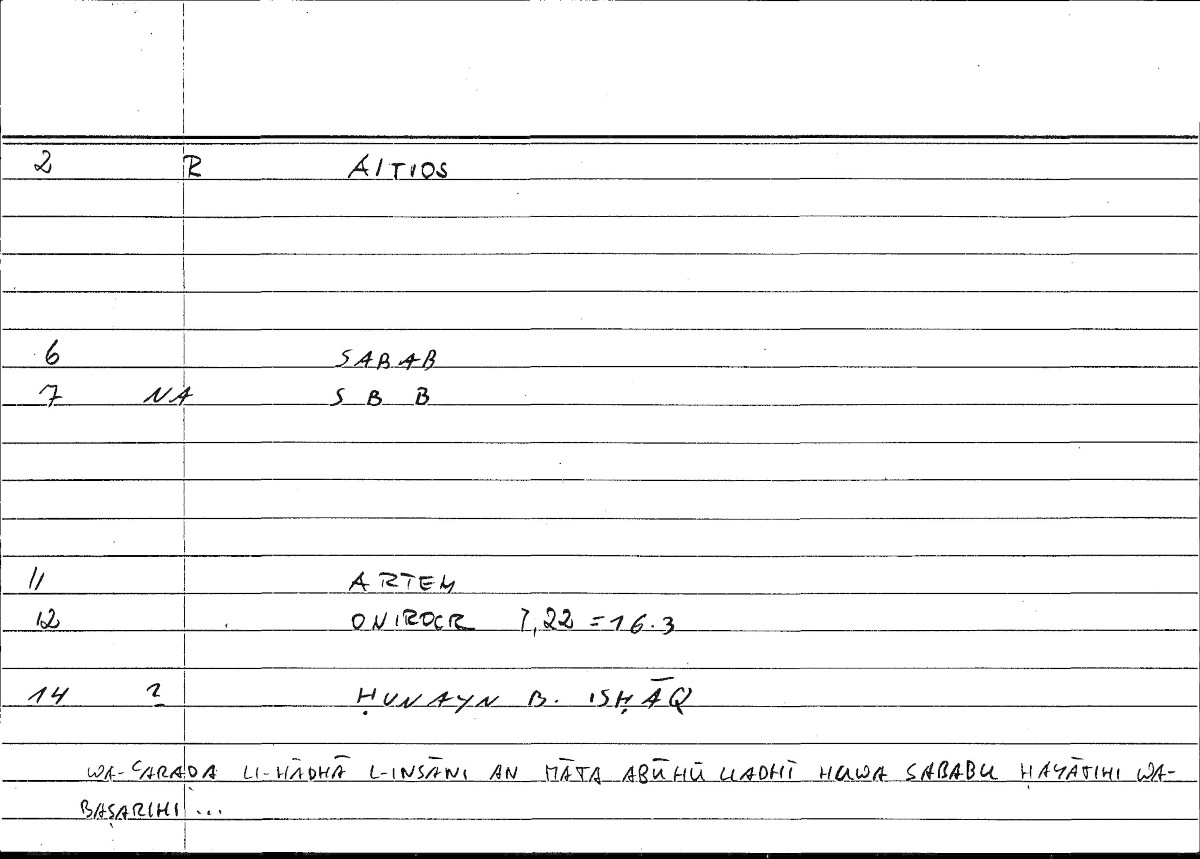 2 R AITIOS
6 SABAB
7 NA S B B
11 ARTEM
12 ONIROCR 7,22 = 16.3
14 2 ḤUNAYN B. ISḤĀQ
WA-ʿARAḌA LI-HĀDHĀ L-INSĀNI AN MĀTA ABŪHŪ LLADHĪ HUWA SABABU ḤAYĀTIHI WA-
BAṢARIHI ...